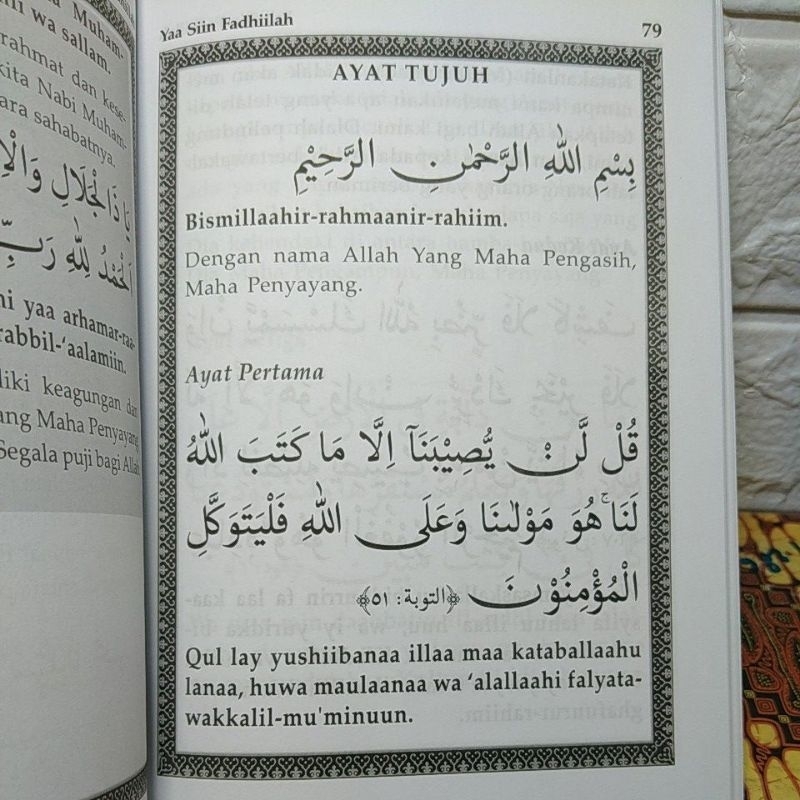 i Muham-
ni wa sallam.
rahmat dan kese-
kita Nabi Muham-
ara sahabatnya.
يَا ذَالْجَلَالِ وَالْاِ
اَلْحَمْدُ لِلّٰهِ رَبِّ
ni yaa arhamar-raa-
rabbil-‘aalamiin.
liki keagungan dan
ang Maha Penyayang
Segala puji bagi Allah
Yaa Siin Fadhiilah
79
AYAT TUJUH
بِسْمِ اللّٰهِ الرَّحْمٰنِ الرَّحِيْمِ
Bismillaahir-rahmaanir-rahiim.
Dengan nama Allah Yang Maha Pengasih,
Maha Penyayang.
Ayat Pertama
قُلْ لَّنْ يُّصِيْبَنَآ اِلَّا مَا كَتَبَ اللّٰهُ
لَنَاۚ هُوَ مَوْلٰىنَا وَعَلَى اللّٰهِ فَلْيَتَوَكَّلِ
الْمُؤْمِنُوْنَ ﴿التوبة: ٥١﴾
Qul lay yushiibanaa illaa maa kataballaahu
lanaa, huwa maulaanaa wa ‘alallaahi falyata-
wakkalil-mu'minuun.